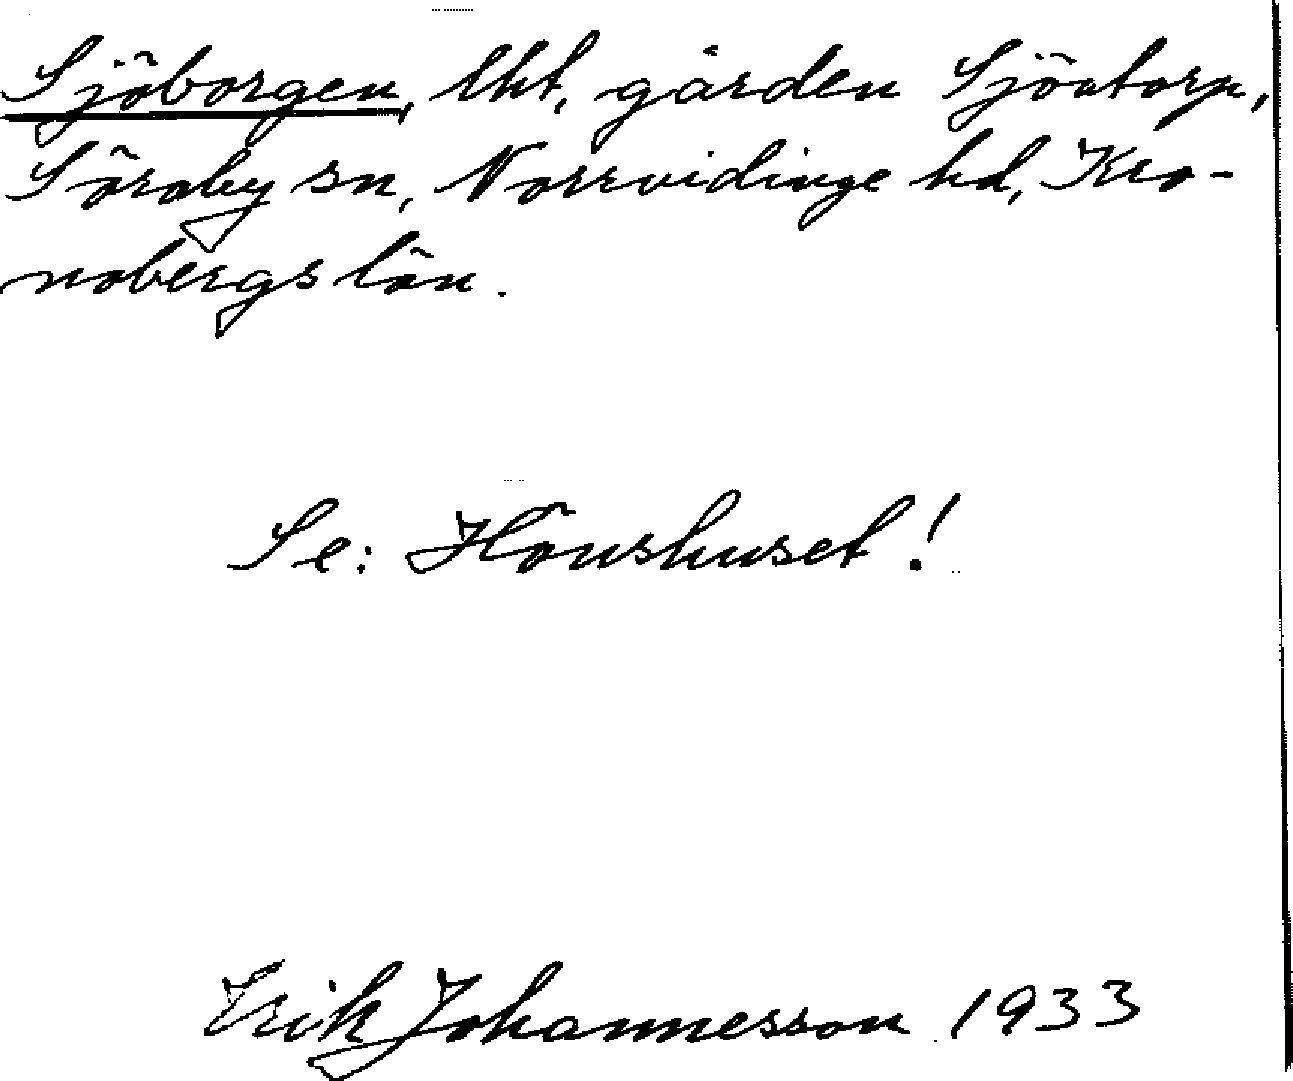 Sjöborgen, lht, gården Sjöatorp,
Söraby sn, Norrvidinge hd, Kro-
nobergs län.
Se: Hönshuset!
Erik Johannesson 1933